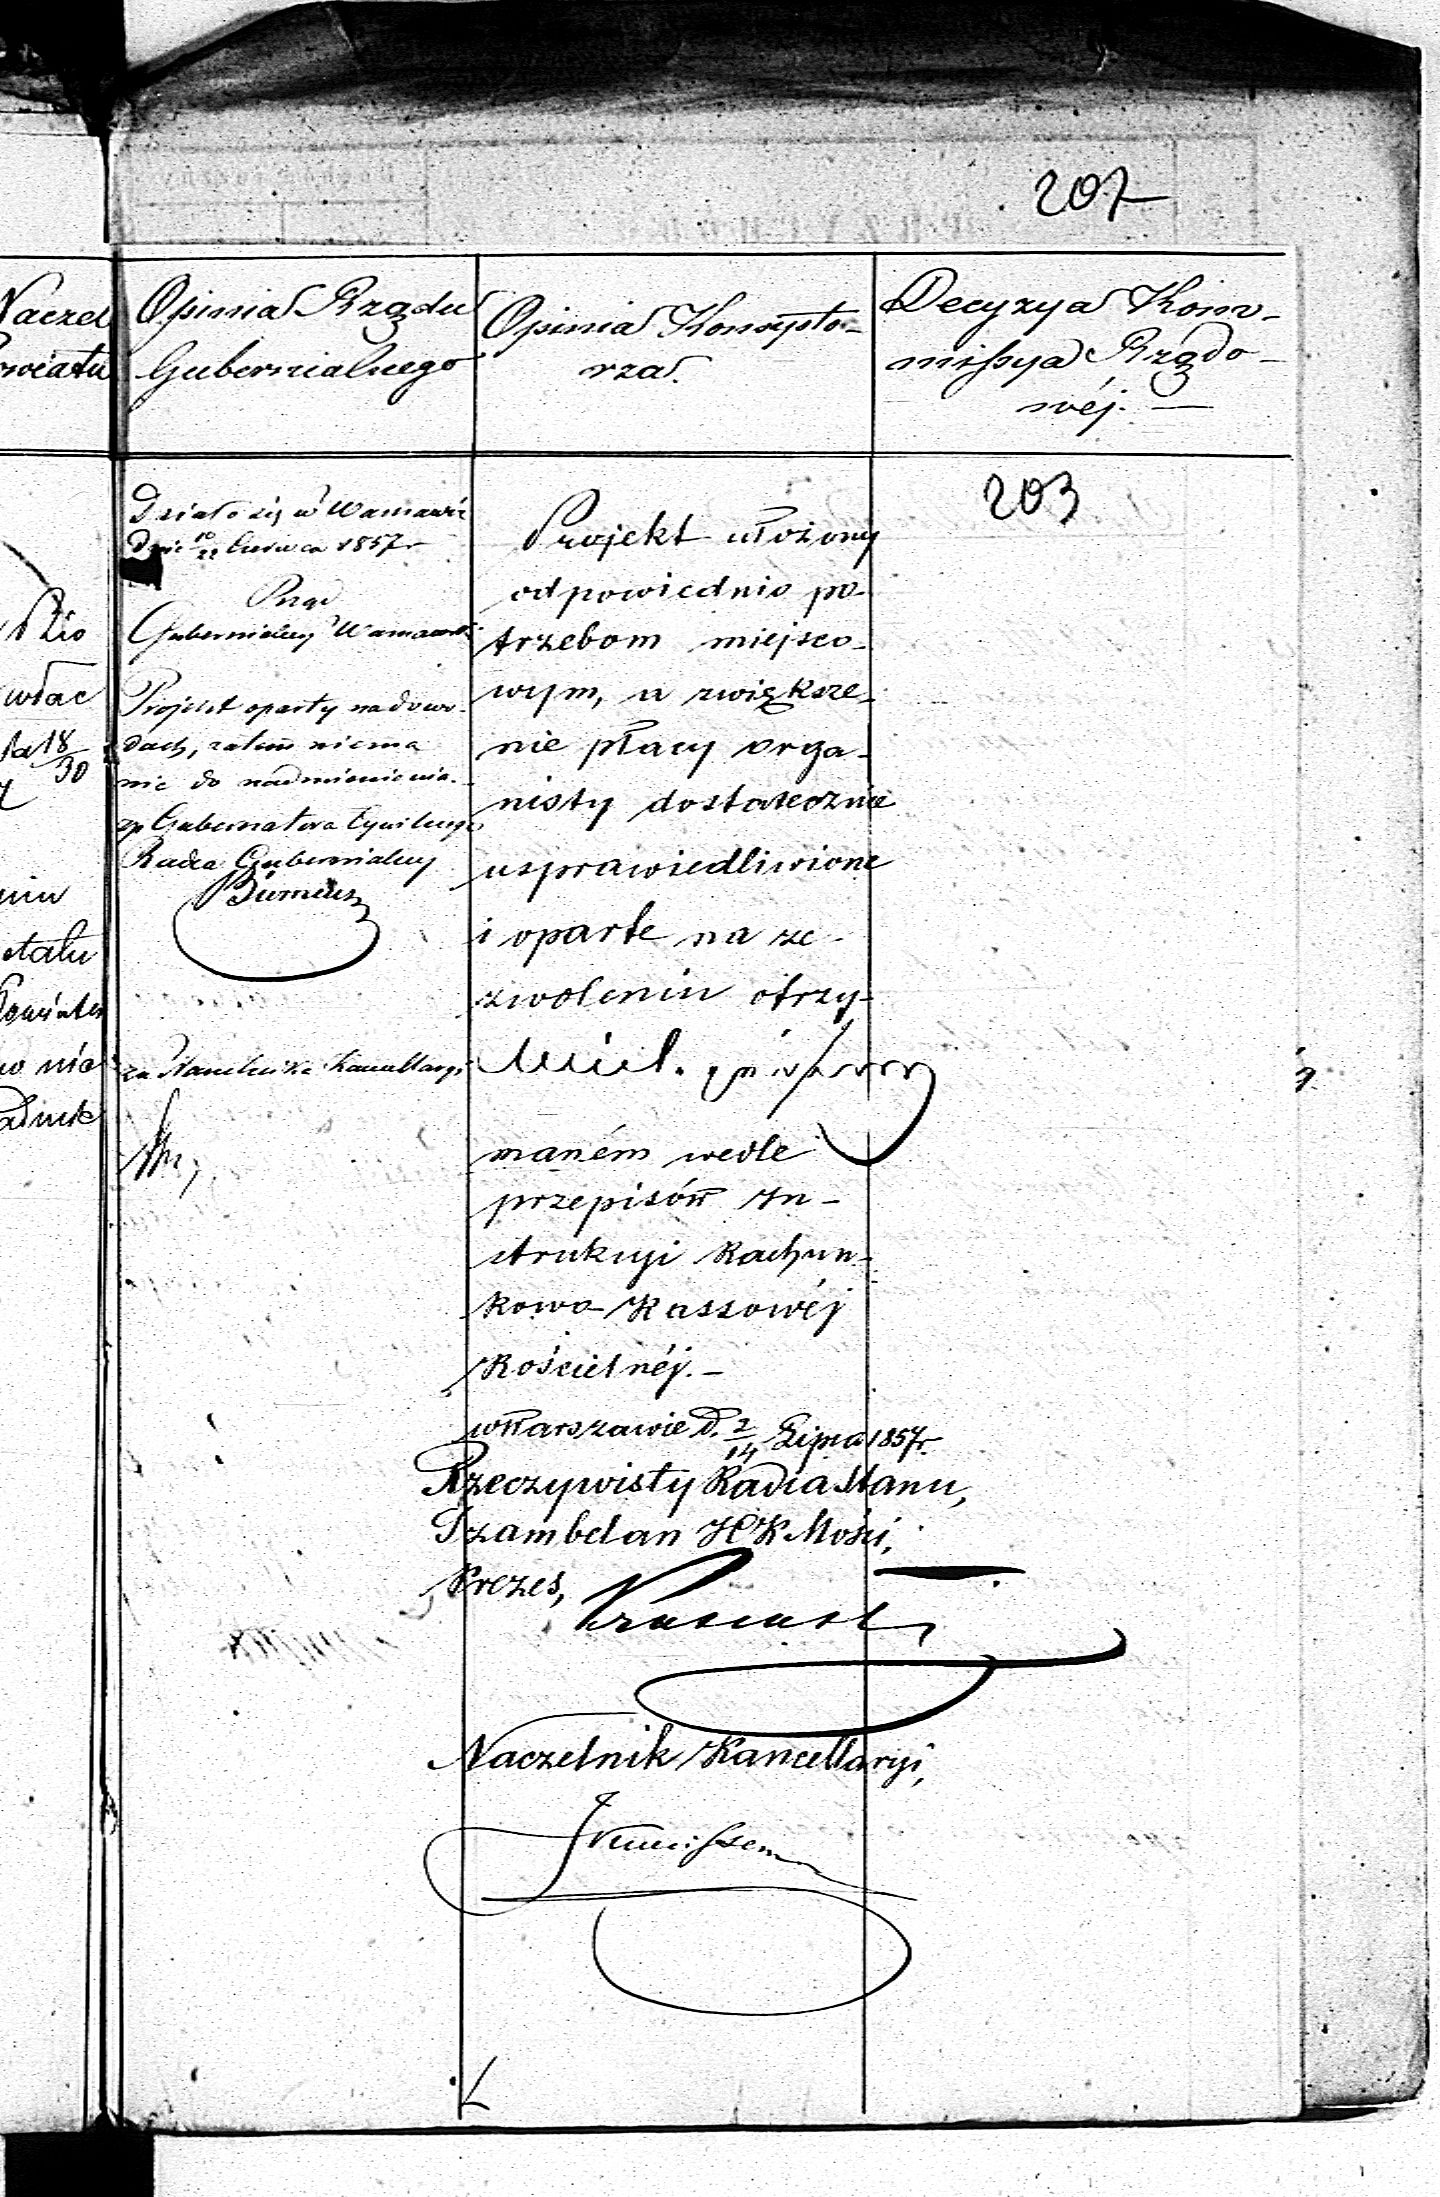 207
Naczel
Powiatu
Opinia Rządu
Gubernialnego
Opinia Konsysto-
rza.
Decyzya Kom-
missya Rządo-
wéj. —
203
Działo się w Warszawie
Dnia 10/22 Czerwca 1857 r
Rząd
Gubernialny Warszawski
Projekt oparty na dowo-
dach, zatem niema
nic do nadmienienia.
zp Gubernatora Cywilnego
Radca Gubernialny
za Naczelnika Kancellaryi
Projekt ułożony
odpowiednio po-
trzebom miejsco-
wym, a zwiększe-
nie płacy orga-
nisty dostatecznie
usprawiedliwione
i oparte na ze-
zwoleniu otrzy-
maném wedle
przepisów In-
strukcyi Rachun-
kowo-Kassowéj
Kościelnéj.—
w Warszawie d. 2/14 Lipca 1857 r.
Rzeczywisty Radca Stanu,
Szambelan JCK Mości,
Prezes,
Naczelnik Kancellaryi,
włac
18/30
niu
etatu
Powiatu